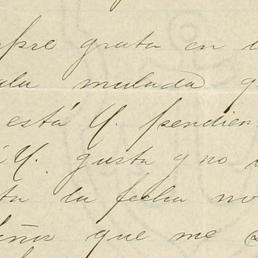 pre grata en
mulada
está V. pendien
V. gusta y no
ta la fecha no
que me